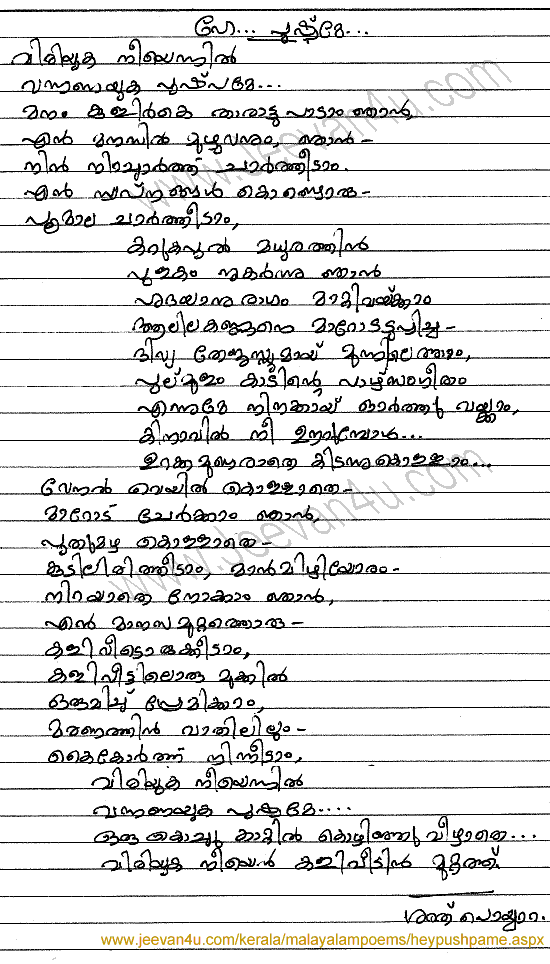 ഹേ... പുഷ്പമേ...
വിരിയുക നീയെന്നിൽ
വന്നണയുക പുഷ്പമേ...
മനം കുളിർകെ താരാട്ടു പാടാം ഞാൻ,
എൻ മനസിൽ മുഴുവനും, ഞാൻ-
നിൻ ചാർത്തീടാം.
എൻ സ്വപ്നങ്ങൾ കൊണ്ടൊരു-
പൂമാല ചാർത്തീടാം,
കറുകപുൽ മധുരത്തിൻ
പുളകം നുകർന്ന ഞാൻ
ഹൃദയാനുരാഗം മാറ്റിവയ്ക്കാം
ആലിലകണ്ണനെ മാറോടടുപ്പിച്ച-
ദിവ്യ തേജസ്സുമായ് മുന്നിലെത്താം,
പുല്മുളം കാടിന്റെ പാഴ്സംഗീതം
എന്നുമേ നിനക്കായ് ഓർത്തു വയ്ക്കാം,
കിനാവിൽ നീ ഊറുമ്പോൾ...
ഉറക്കമുണരാതെ കിടന്നുകൊള്ളാം...
വേനൽ വെയിൽ കൊള്ളാതെ-
മാറോട് ചേർക്കാം ഞാൻ,
പുതുമഴ കൊള്ളാതെ-
കൂടിലിരുത്തീടാം, മാൻമിഴിയോരം-
നിറയാതെ നോക്കാം ഞാൻ,
എൻ മാനസമുറ്റത്തൊരു-
കളിവീടൊരുക്കീടാം,
കളിവീട്ടിലൊരു മുക്കിൽ
ഒരുമിച്ച് പ്രേമിക്കാം,
മരണത്തിൻ വാതിലിലും-
കൈകോർത്ത് നിന്നീടാം,
വിരിയുക നീയെന്നിൽ
വന്നണയുക പുഷ്പമേ....
ഒരു കൊച്ചു കാറ്റിൽ കൊഴിഞ്ഞു വീഴാതെ...
വിരിയുക നീയെൻ കളിവീടിൻ മുറ്റത്ത്.
www.jeevan4u.com
www.jeevan4u.com
www.jeevan4u.com/kerala/malayalampoems/heypushpame.aspx